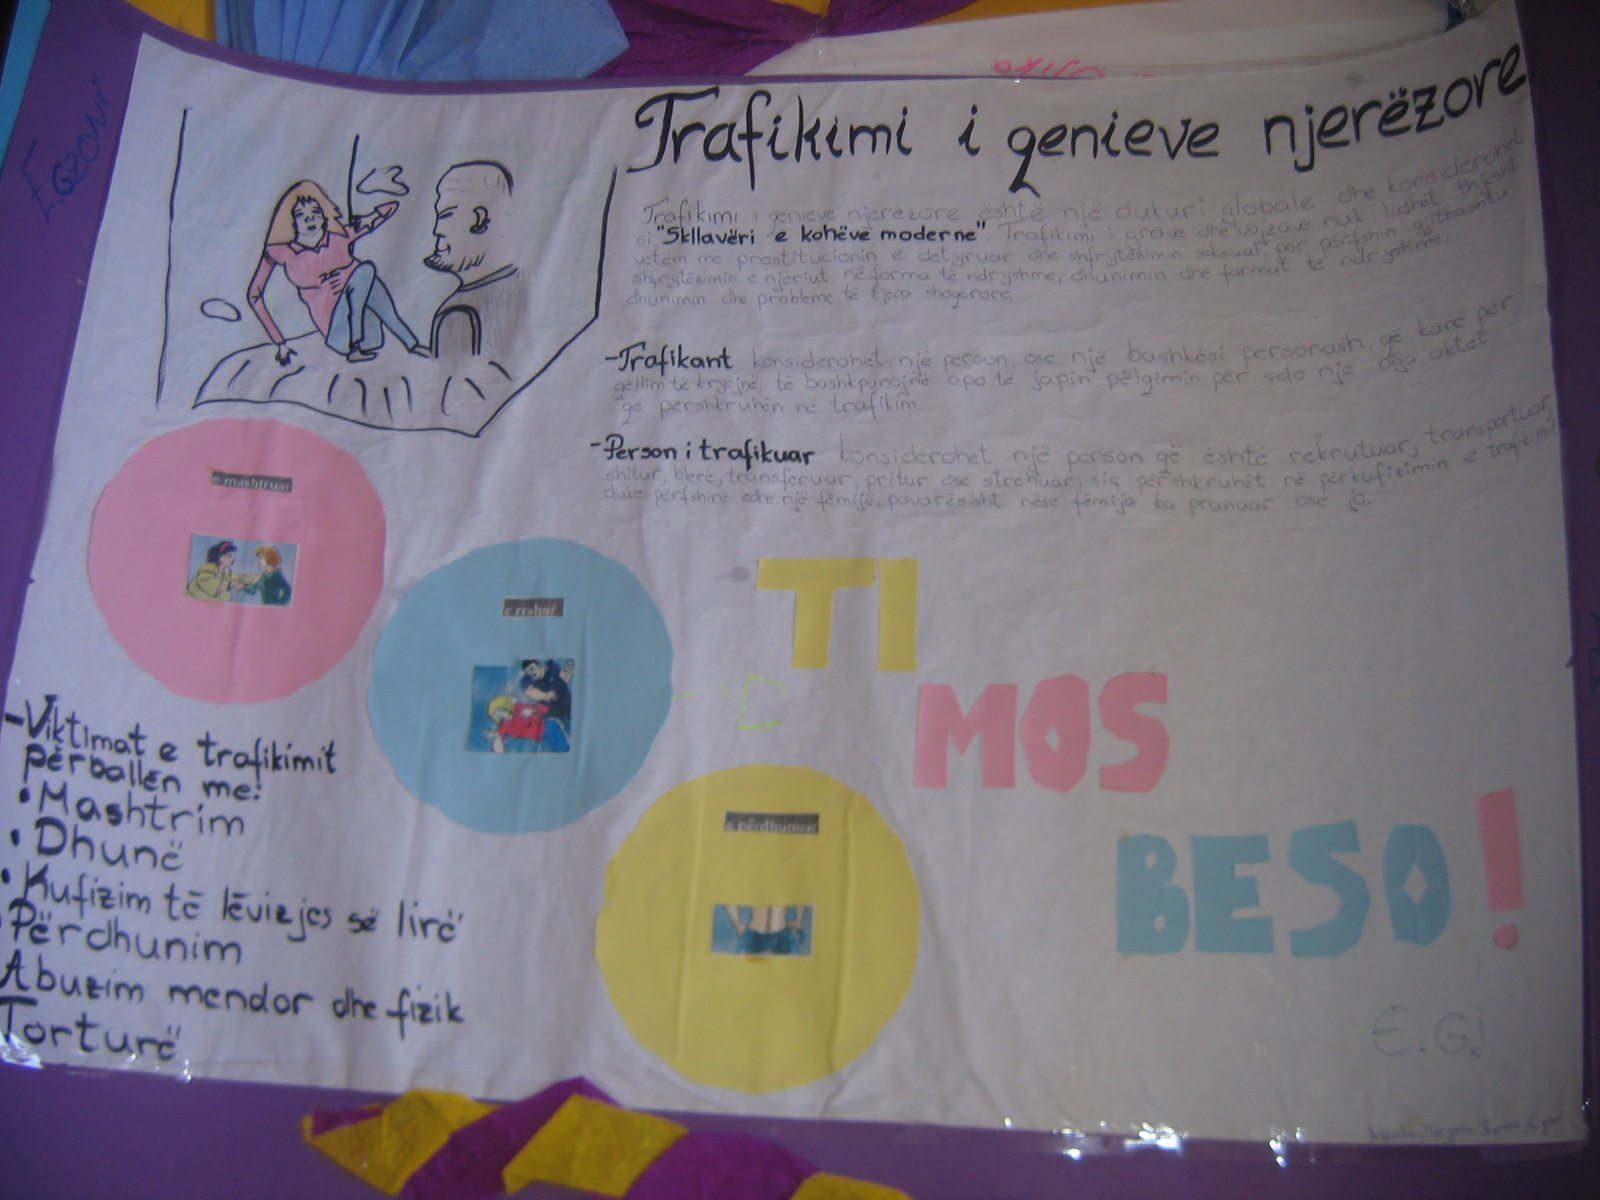 Egzoni
Trafikimi i qenieve njerëzore
Trafikimi i qenieve njerëzore është një dukuri globale dhe konsiderohet
si "Skllavëri e kohëve moderne". Trafikimi i grave dhe vajzave nuk lidhet thjesht
vetëm me prostitucionin e detyruar dhe shfrytëzimin seksual, por përfshin gjithashtu
shfrytëzimin e njeriut në forma të ndryshme, dhunimin dhe format të ndryshme,
dhunimin dhe probleme të tjera shoqërore.
-Trafikant konsiderohet një person, ose një bashkësi personash, që kanë për
qëllim të kryejnë, të bashkpunojnë apo të japin pëlqimin për çdo një nga aktet
që përshkruhen në trafikim.
-Person i trafikuar konsiderohet një person që është rekrutuar, transportuar,
shitur, blerë, transferuar, pritur ose strehuar, siç përshkruhet në përkufizimin e trafikimit
duke përfshirë edhe një fëmijë, pavarësisht nëse fëmija ka pranuar ose jo.
e mashtruar
e rrahur
e përdhunuar
-Viktimat e trafikimit
përballen me:
•Mashtrim
•Dhunë
•Kufizim të lëvizjes së lirë
Përdhunim
Abuzim mendor dhe fizik
Torturë
TI
MOS
BESO!
E.Gj